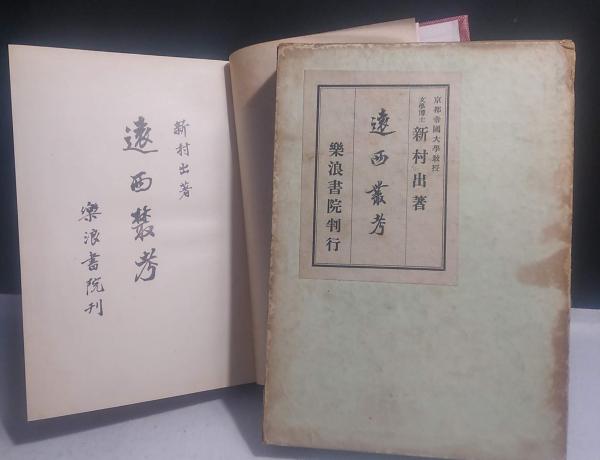 新村出著
遠西叢考
樂浪書院刊
京都帝國大學教授
文學博士 新村出著
遠西叢考
樂浪書院刊行